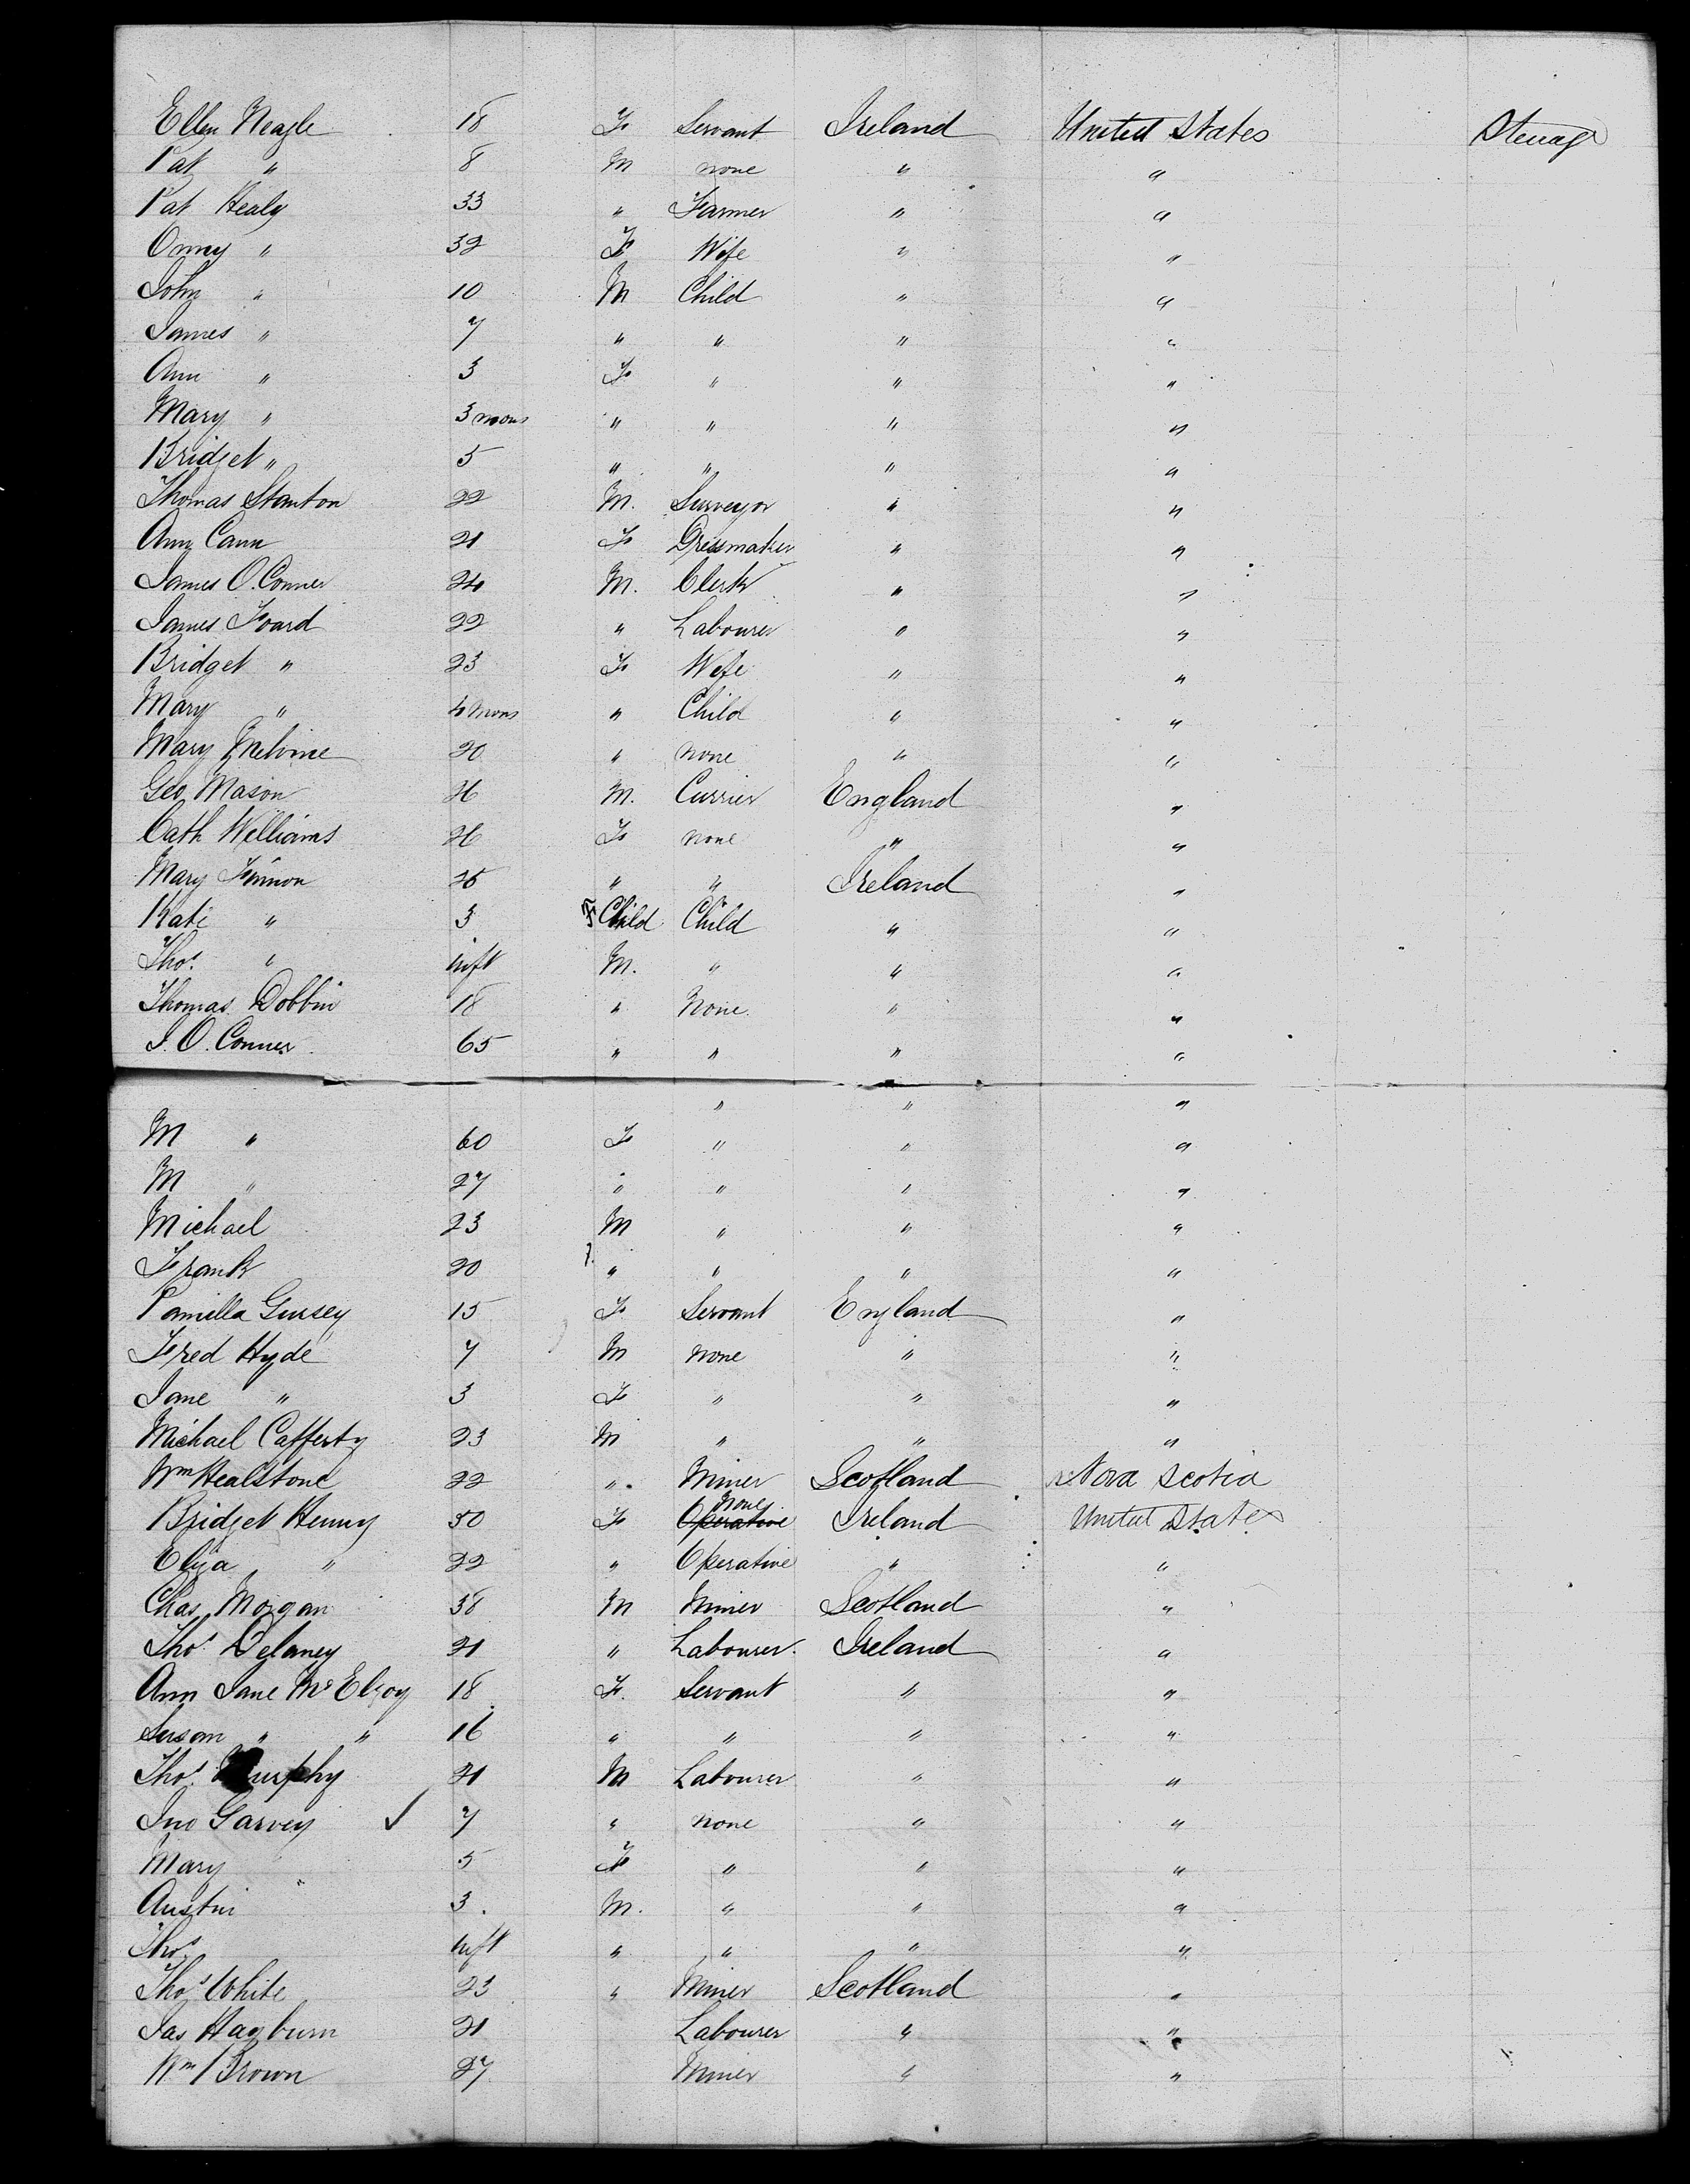 Ellen Neagle 18 F Servant Ireland United States Steerage
Pat " 8 M none " "
Pat Healy 33 " Farmer " "
Onny " 32 F Wife " "
John " 10 M Child " "
James " 7 " " " "
Ann " 3 F " " "
Mary " 3 mons " " " "
Bridget " 5 " " " "
Thomas Stanton 22 M. Surveyor " "
Ann Cann 21 F Dressmaker " "
James O. Conner 24 M. Clerk " "
James Foard 22 " Labourer " "
Bridget " 23 F Wife " "
Mary " 4 mons " Child " "
Mary Melvine 20 " none " "
Geo Mason 26 M. Currier England "
Cath Williams 26 F none " "
Mary Finnon 25 " " Ireland "
Kate " 3 F Child Child " "
Thos. " inft M. " " "
Thomas Dobbin 18 " None " "
J. O. Conner 65 " " " "
" " "
M " 60 F " " "
M " 27 " " " "
Michael 23 M " " "
Frank 20 " " " "
Pamilla Gursey 15 F Servant England "
Fred Hyde 7 M none " "
Jane " 3 F " " "
Michael Cafferty 23 M " " "
Wm Healstone 22 " Miner Scotland Nova Scotia
Bridget Henny 50 F Operative none Ireland United States
Eliza " 22 " Operative " "
Chas Morgan 38 M Miner Scotland "
Thos Delaney 21 " Labourer Ireland "
Ann Jane McElroy 18 F. Servant " "
Susan " " 16 " " " "
Thos. Murphy 21 M Labourer " "
Jno Garvey ✓ 7 " none " "
Mary " 5 F " " "
Austin 3. M. " " "
Thos inft " " " "
Thos White 23 " Miner Scotland "
Jas Hayburn 21 Labourer " "
Wm Brown 27 Miner " "